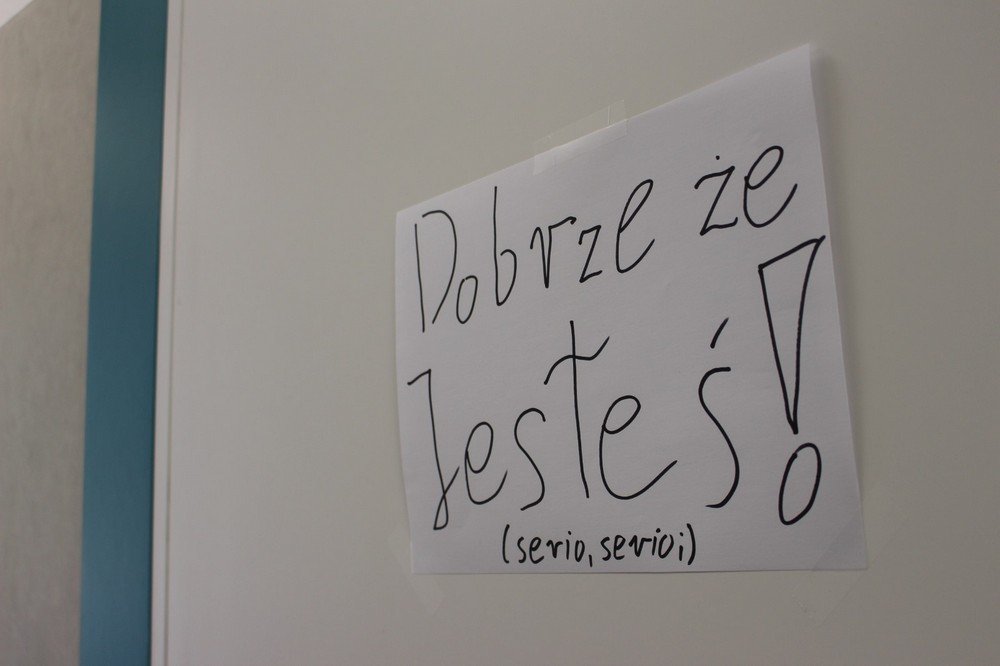 Dobrze że
Jesteś!
(serio, serio;)